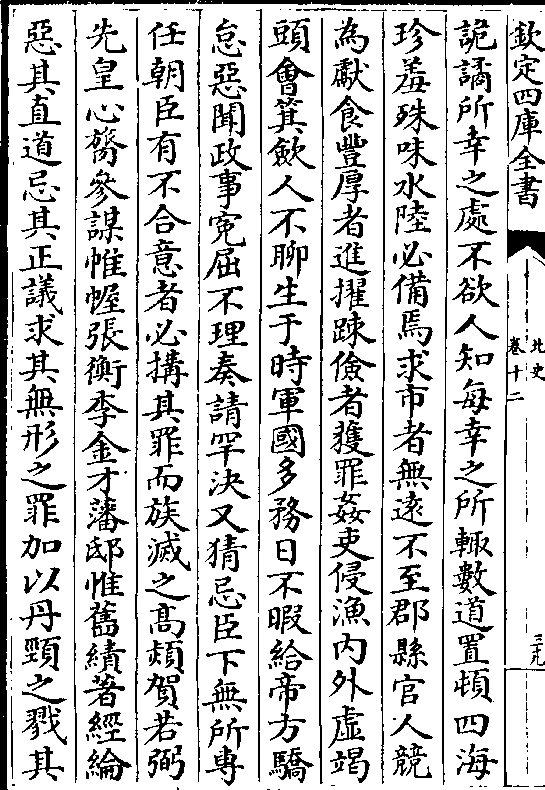 欽定四庫全書
北史
卷十二
三十九
詭譎所幸之處不欲人知每幸之所輙數道置頓四海
珍羞殊味水陸必備焉求市者無逺不至郡縣官人競
為獻食豐厚者進擢踈儉者獲罪姦吏侵漁内外虛竭
頭會箕歛人不聊生于時軍國多務日不暇給帝方驕
怠惡聞政事寃屈不理奏請罕決又猜忌臣下無所專
任朝臣有不合意者必搆其罪而族滅之髙熲賀若弼
先皇心膂參謀帷幄張衡李金才藩邸惟舊績著經綸
惡其直道忌其正議求其無形之罪加以丹頸之戮其